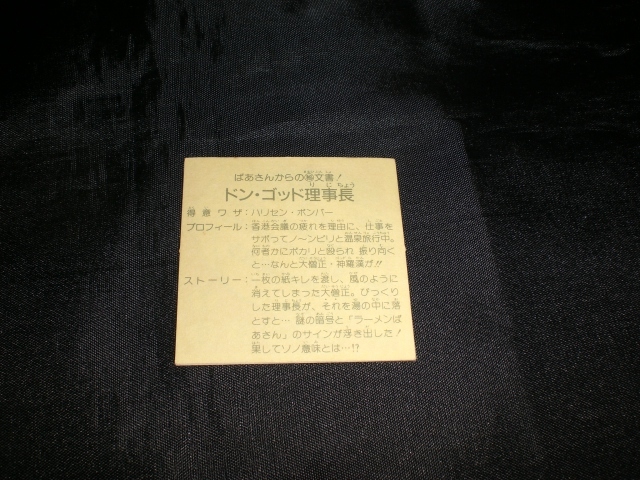 ばあさんからの㊙文書!
ドン・ゴッド理事長
得意ワザ:ハリセン・ボンバー
プロフィール:香港会議の疲れを理由に、仕事を
サボってノ〜ンビリと温泉旅行中。
何者かにポカリと殴られ 振り向く
と…なんと大僧正・神羅漢が!!
ストーリー:一枚の紙キレを渡し、風のように
消えてしまった大僧正。びっくり
した理事長が、それを湯の中に落
とすと… 謎の暗号と「ラーメンば
あさん」のサインが浮き出した!
果してソノ意味とは…!?